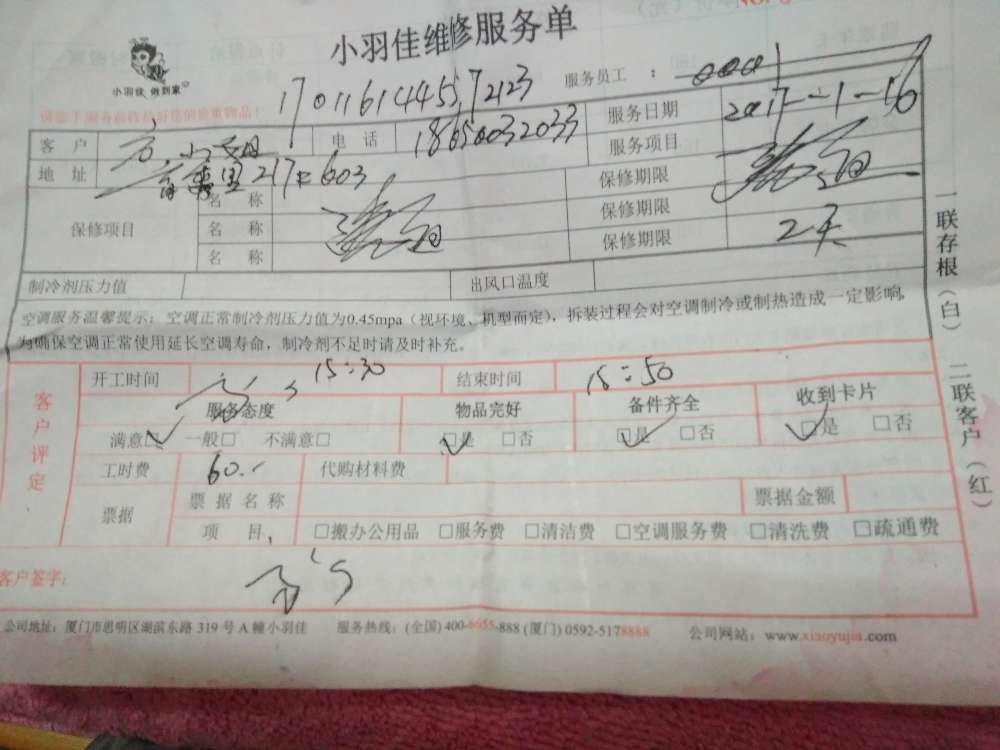 小羽佳维修服务单
小羽佳 做到家
17011614455,72123
服务员工 : 0001
客户 电话 18650032033 服务日期 2017-1-16
地址 217# 603 服务项目
保修项目 名称 保修期限
名称 保修期限
名称 保修期限 2天
制冷剂压力值 出风口温度
空调服务温馨提示:空调正常制冷剂压力值为0.45mpa(视环境、机型而定),拆装过程会对空调制冷或制热造成一定影响,
为确保空调正常使用延长空调寿命,制冷剂不足时请及时补充。
一联存根(白) 二联客户(红)
客户评定
开工时间 15:30 结束时间 15:50
服务态度 物品完好 备件齐全 收到卡片
满意□ 一般□ 不满意□ □是 □否 □是 □否 □是 □否
工时费 60. 代购材料费
票据 票据名称 票据金额
项目, □搬办公用品 □服务费 □清洁费 □空调服务费 □清洗费 □疏通费
客户签字:
公司地址:厦门市思明区湖滨东路 319 号 A 幢小羽佳 服务热线:(全国) 400-6655-888 (厦门) 0592-5178888 公司网站:www.xiaoyujia.com